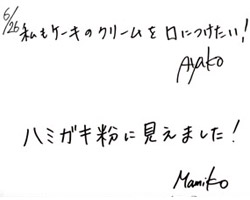 6/26 私もケーキのクリームを口につけたい!
Ayako
ハミガキ粉に見えました!
Mamiko